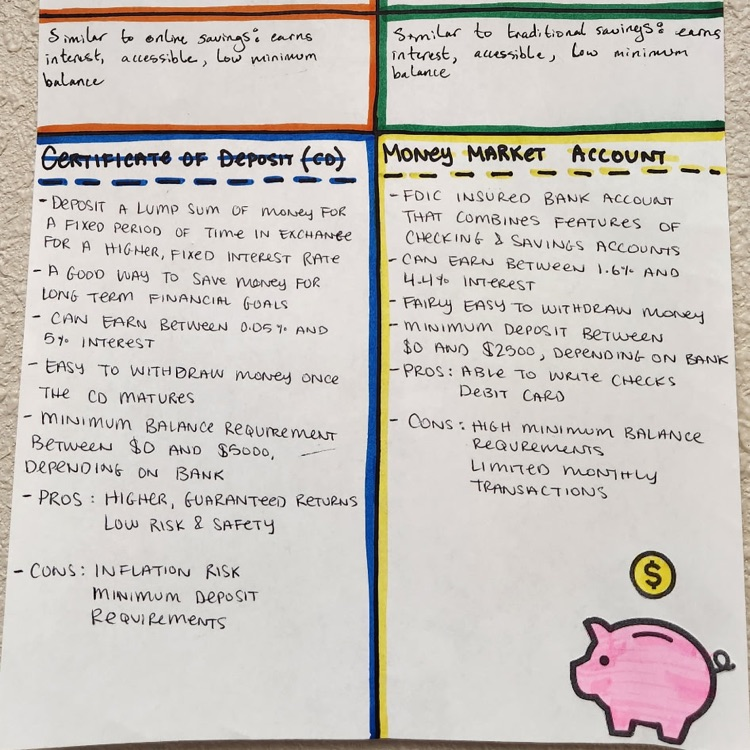 Similar to online savings: earns
interest, accessible, low minimum
balance
Similar to traditional savings: earns
interest, accessible, low minimum
balance
CERTIFICATE OF DEPOSIT (CD)
- DEPOSIT A LUMP SUM OF MONEY FOR
A FIXED PERIOD OF TIME IN EXCHANGE
FOR A HIGHER, FIXED INTEREST RATE
- A GOOD WAY TO SAVE MONEY FOR
LONG TERM FINANCIAL GOALS
- CAN EARN BETWEEN 0.05% AND
5% INTEREST
- EASY TO WITHDRAW MONEY ONCE
THE CD MATURES
- MINIMUM BALANCE REQUIREMENT
BETWEEN $0 AND $5000,
DEPENDING ON BANK
- PROS: HIGHER, GUARANTEED RETURNS
LOW RISK & SAFETY
- CONS: INFLATION RISK
MINIMUM DEPOSIT
REQUIREMENTS
MONEY MARKET ACCOUNT
- FDIC INSURED BANK ACCOUNT
THAT COMBINES FEATURES OF
CHECKING & SAVINGS ACCOUNTS
- CAN EARN BETWEEN 1.6% AND
4.4% INTEREST
- FAIRLY EASY TO WITHDRAW MONEY
- MINIMUM DEPOSIT BETWEEN
$0 AND $2500, DEPENDING ON BANK
- PROS: ABLE TO WRITE CHECKS
DEBIT CARD
- CONS: HIGH MINIMUM BALANCE
REQUREMENTS
LIMITED MONTHLY
TRANSACTIONS
$